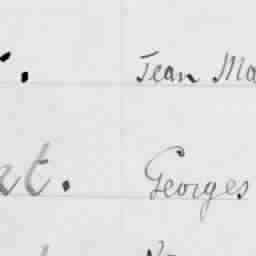 Jean Ma
at. Georges